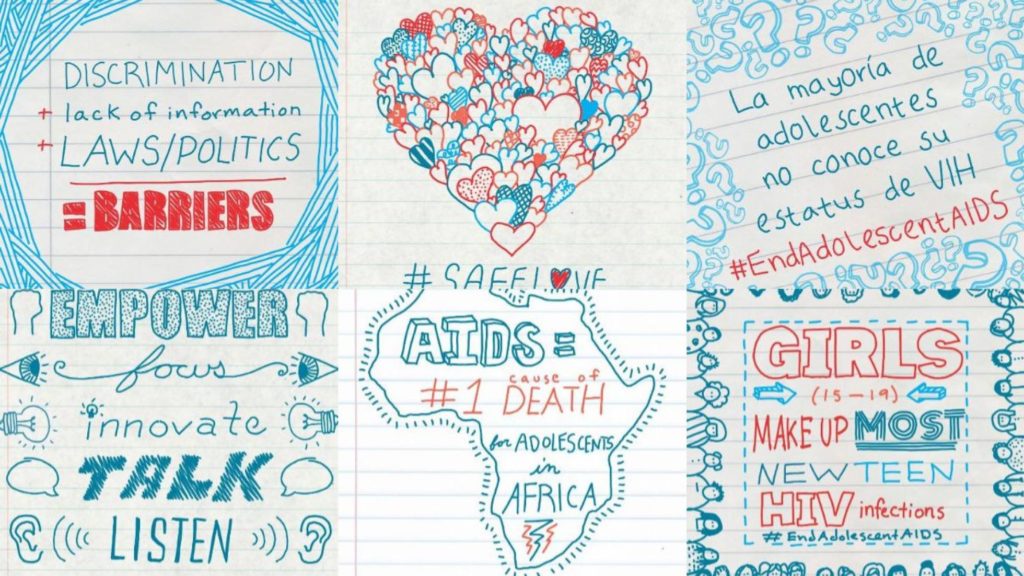 DISCRIMINATION
+ lack of information
+ LAWS/POLITICS
= BARRIERS
# SAFELOVE
La mayoría de
adolescentes
no conoce su
estatus de VIH
#EndAdolescentAIDS
EMPOWER
focus
innovate
TALK
LISTEN
AIDS =
#1 cause of
DEATH
for ADOLESCENTS
in
AFRICA
GIRLS
(15-19)
MAKE UP MOST
NEW TEEN
HIV infections
#EndAdolescentAIDS